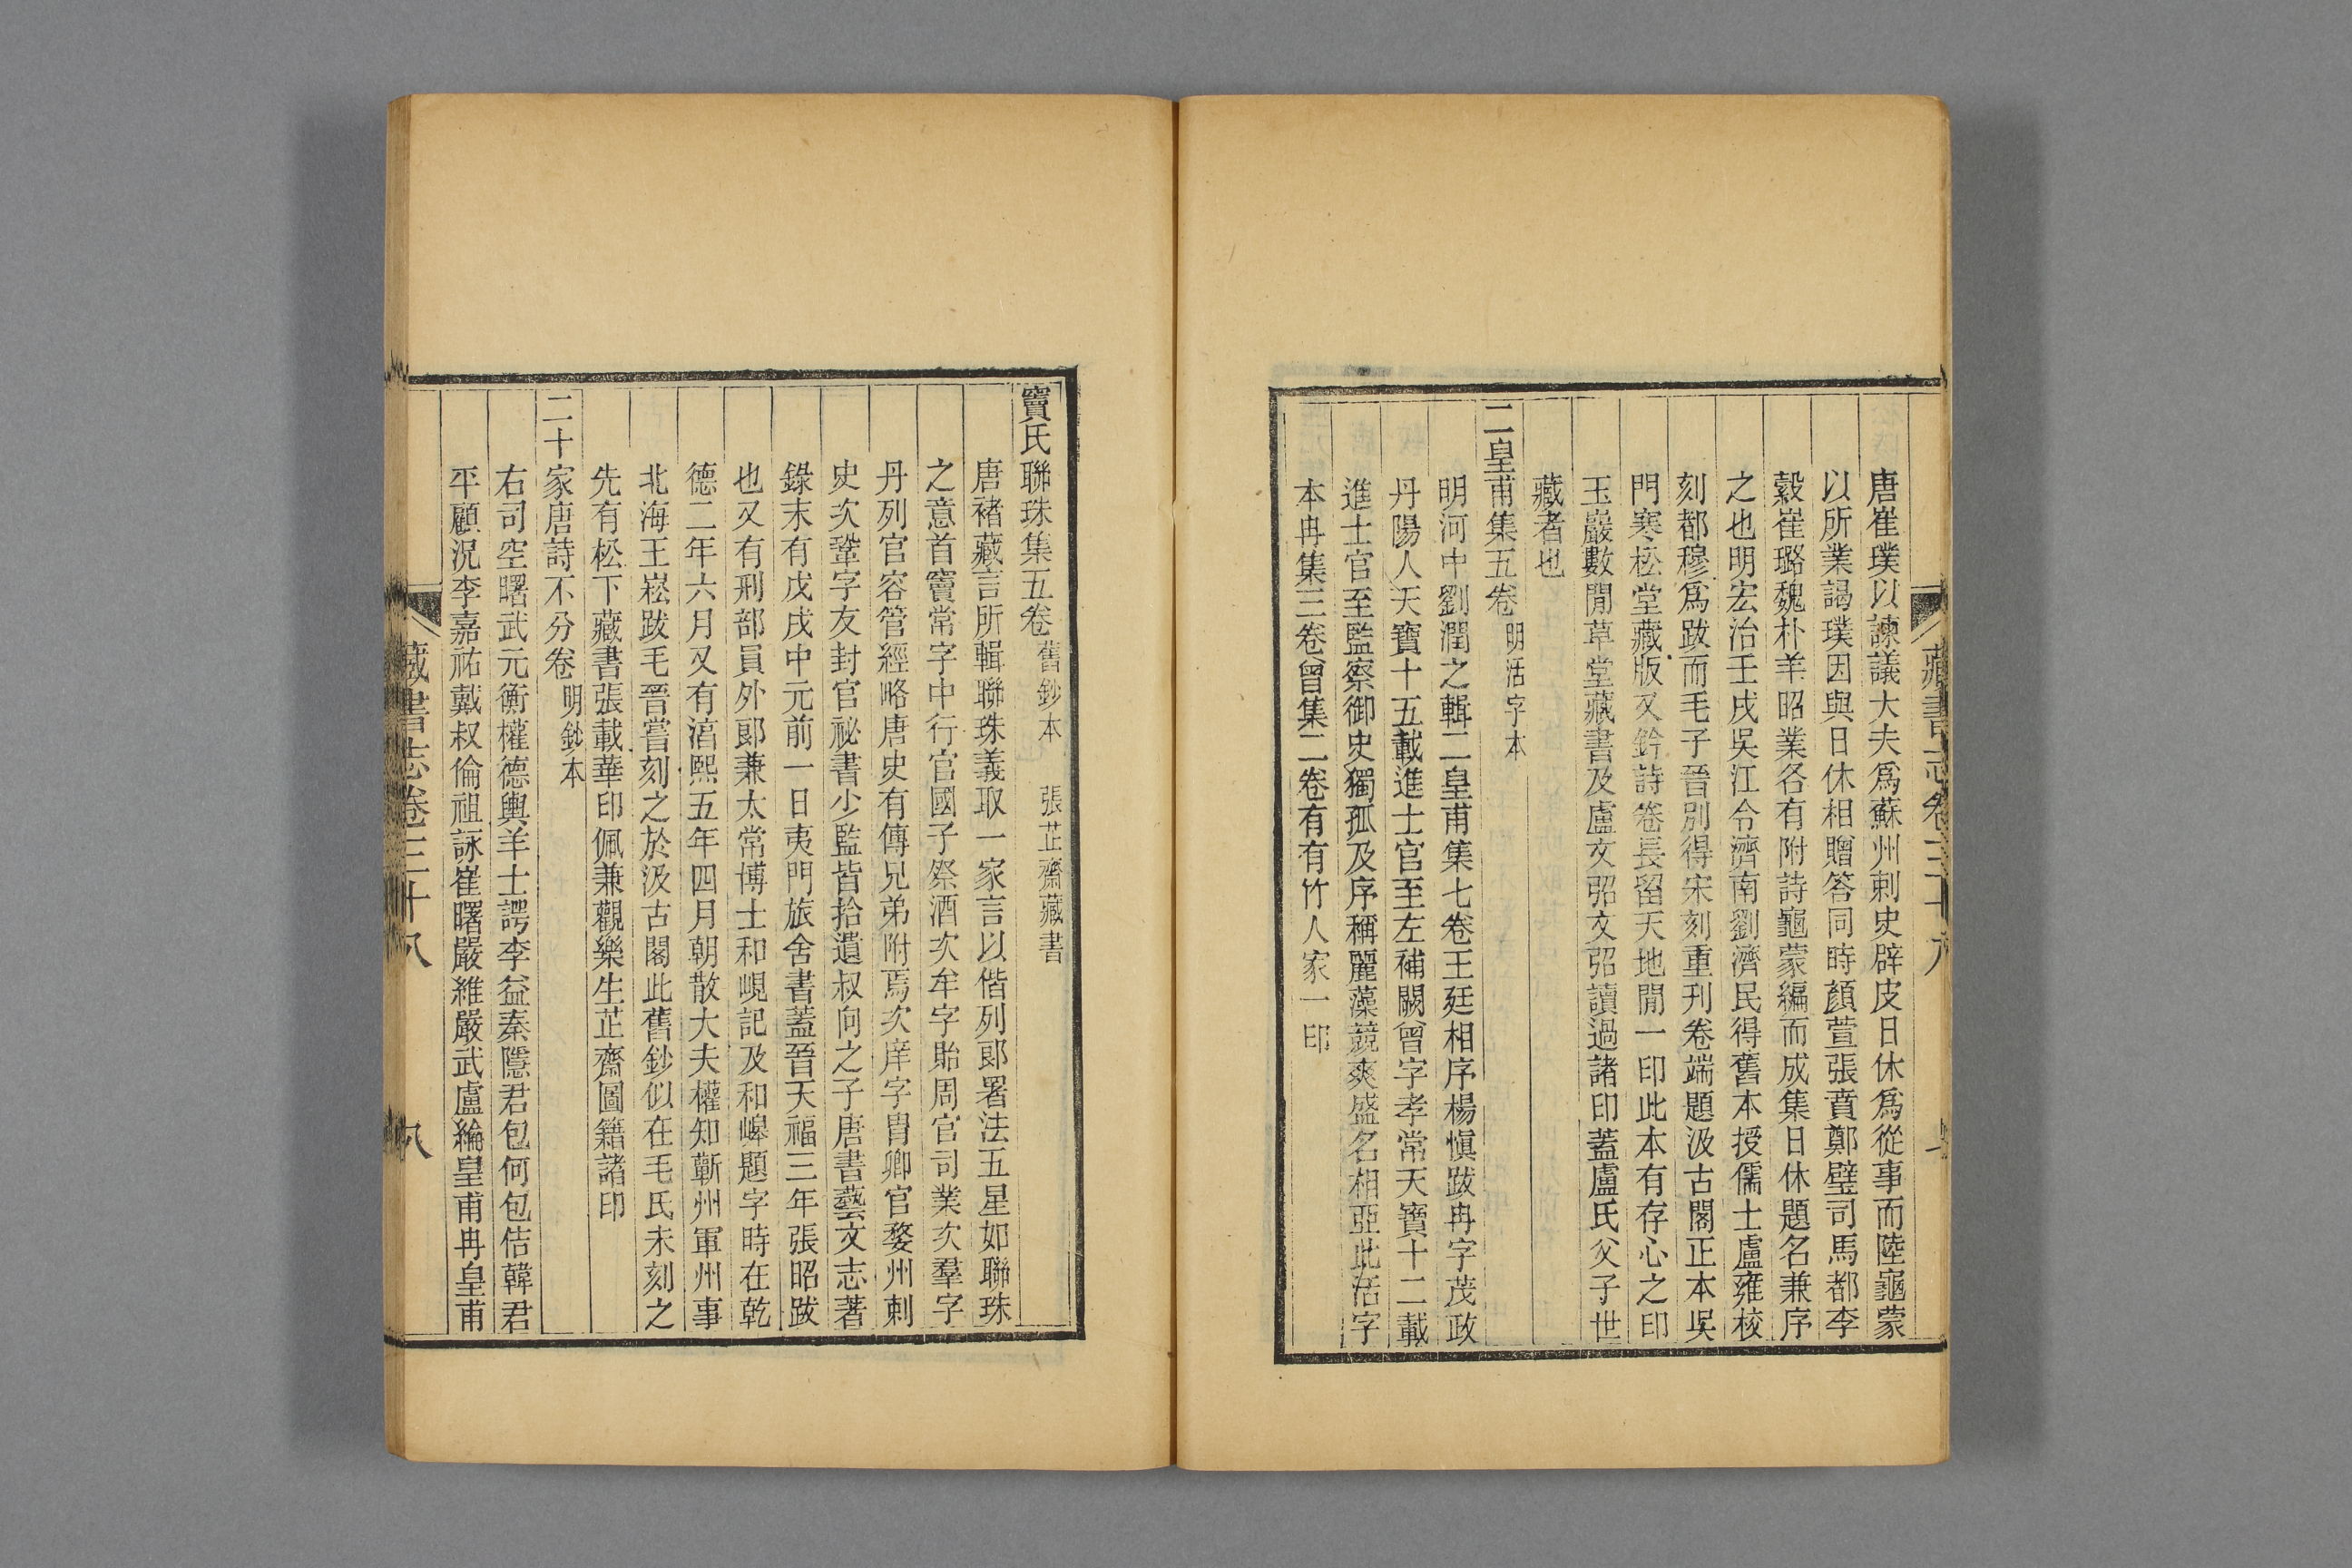 藏書志卷三十八
唐崔璞以諫議大夫爲蘇州刺史辟皮日休爲從事而陸龜蒙
以所業謁璞因與日休相贈答同時顏萱張賁鄭璧司馬都李
縠崔璐魏朴羊昭業各有附詩龜蒙編而成集日休題名兼序
之也明宏治壬戌吳江令濟南劉濟民得舊本授儒士盧雍校
刻都穆爲跋而毛子晉別得宋刻重刊卷端題汲古閣正本吳
門寒松堂藏版又鈐詩卷長留天地閒一印此本有存心之印
玉巖數閒草堂藏書及盧文弨文弨讀過諸印蓋盧氏父子世
藏者也
二皇甫集五卷 明活字本
明河中劉潤之輯二皇甫集七卷王廷相序楊愼跋冉字茂政
丹陽人天寶十五載進士官至左補闕曾字孝常天寶十二載
進士官至監察御史獨孤及序稱麗藻競爽盛名相亞此活字
本冉集三卷曾集二卷有有竹人家一印
竇氏聯珠集五卷 舊鈔本 張芷齋藏書
唐褚藏言所輯聯珠義取一家言以偕列郎署法五星如聯珠
之意首竇常字中行官國子祭酒次牟字貽周官司業次羣字
丹列官容管經略唐史有傳兄弟附焉次庠字冑卿官婺州刺
史次鞏字友封官祕書少監皆拾遺叔向之子唐書藝文志著
錄末有戊戌中元前一日夷門旅舍書蓋晉天福三年張昭跋
也又有刑部員外郎兼太常博士和峴記及和㠓題字時在乾
德二年六月又有湻熙五年四月朝散大夫權知蘄州軍州事
北海王崧跋毛晉嘗刻之於汲古閣此舊鈔似在毛氏未刻之
先有松下藏書張載華印佩兼觀樂生芷齋圖籍諸印
二十家唐詩不分卷 明鈔本
右司空曙武元衡權德輿羊士諤李益秦隱君包何包佶韓君
平顧況李嘉祐戴叔倫祖詠崔曙嚴維嚴武盧綸皇甫冉皇甫
藏書志卷三十八
八